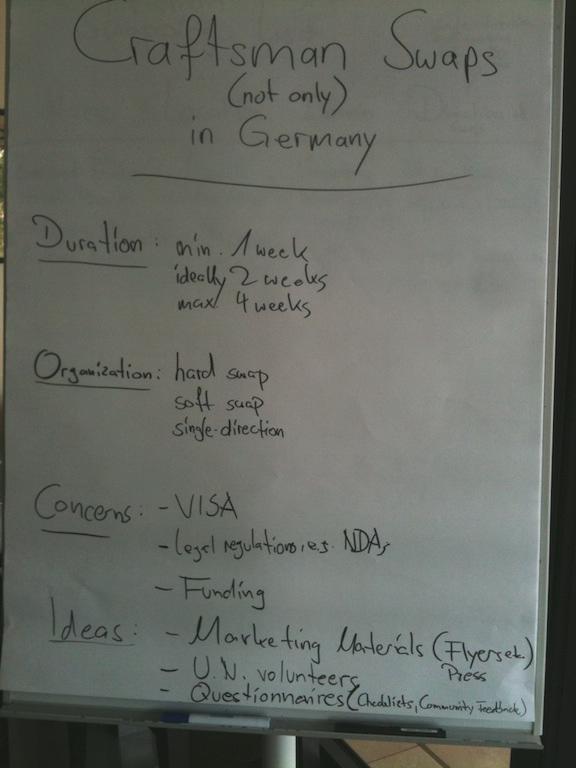 Craftsman Swaps
(not only)
in Germany
Duration: min. 1 week
ideally 2 weeks
max. 4 weeks
Organization: hard swap
soft swap
single-direction
Concerns: - VISA
- legal regulations, e.g. NDAs
- Funding
Ideas: - Marketing Materials (Flyers etc.)
Press
- U.N. volunteers
- Questionnaires (Checklists, Community Feedback)